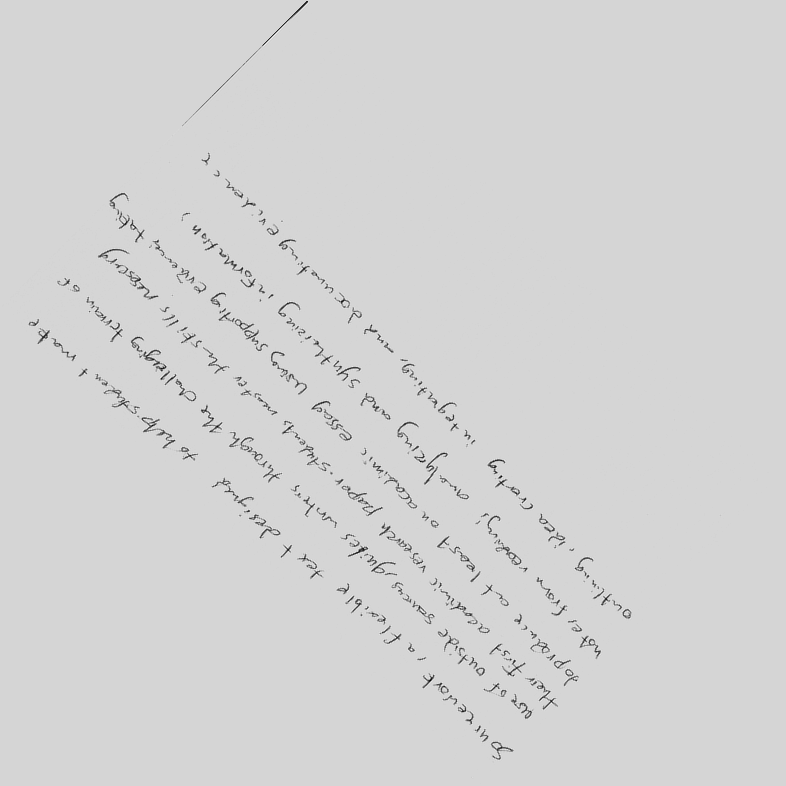 Sourcework , a flexible text designed to help student make
use of outside sources, guides writers through the challeging terrain of
their first acadimic research paper. students master the skills nesesary
to produce at least on acadimic essay using supporting evidence, taking
notes from reading; analyzing and synthesizing information,
outlining, idea crating integrating, and documenting evidence